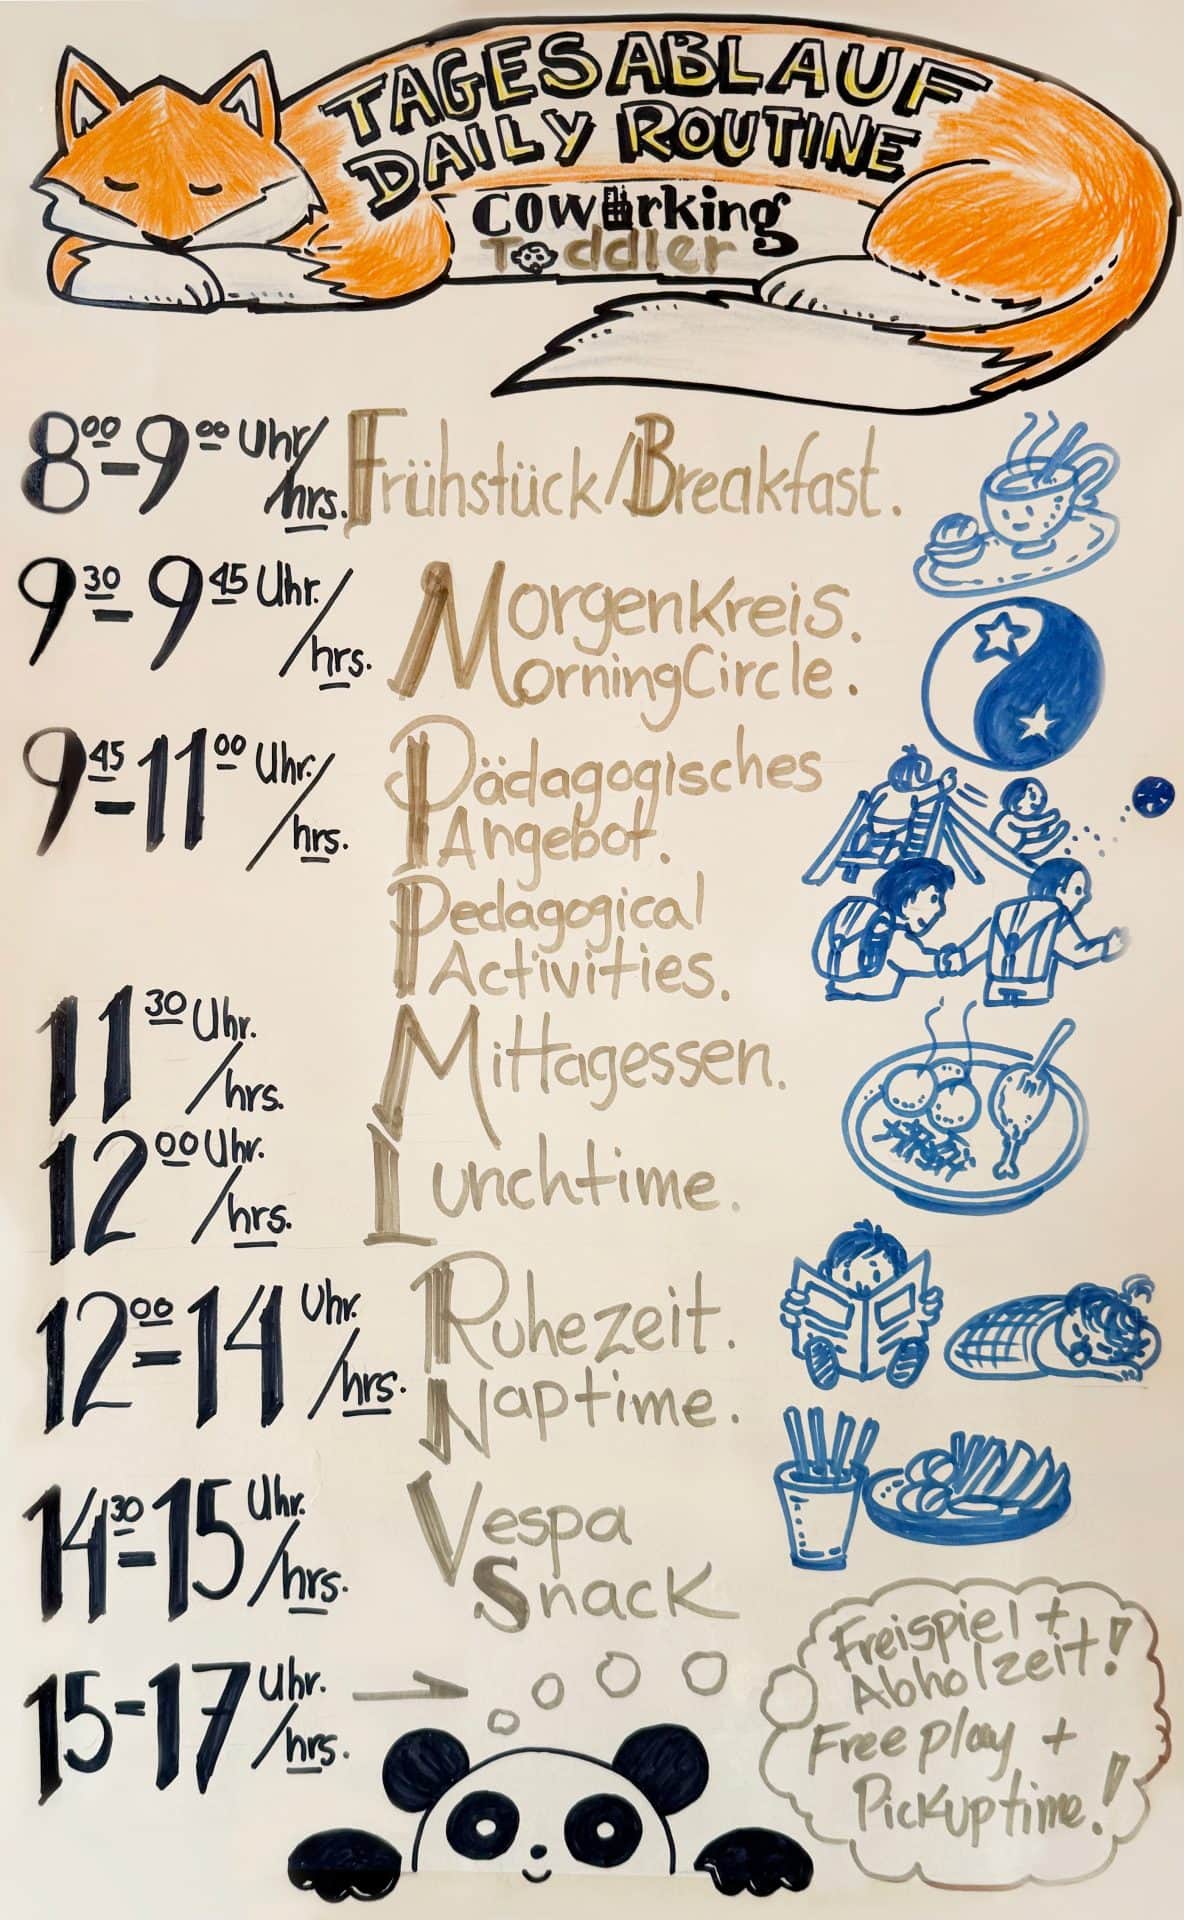 TAGESABLAUF
DAILY ROUTINE
coworking
Toddler
8⁰⁰-9⁰⁰ Uhr/hrs. Frühstück/Breakfast.
9³⁰-9⁴⁵ Uhr./hrs. Morgenkreis.
MorningCircle.
9⁴⁵-11⁰⁰ Uhr./hrs. Pädagogisches
Angebot.
Pedagogical
Activities.
11³⁰ Uhr./hrs. Mittagessen.
12⁰⁰ Uhr./hrs. Lunchtime.
12⁰⁰-14 Uhr./hrs. Ruhezeit.
Naptime.
14³⁰-15 Uhr./hrs. Vespa
Snack
15-17 Uhr./hrs.
Freispiel +
Abholzeit!
Freeplay +
Pickuptime!